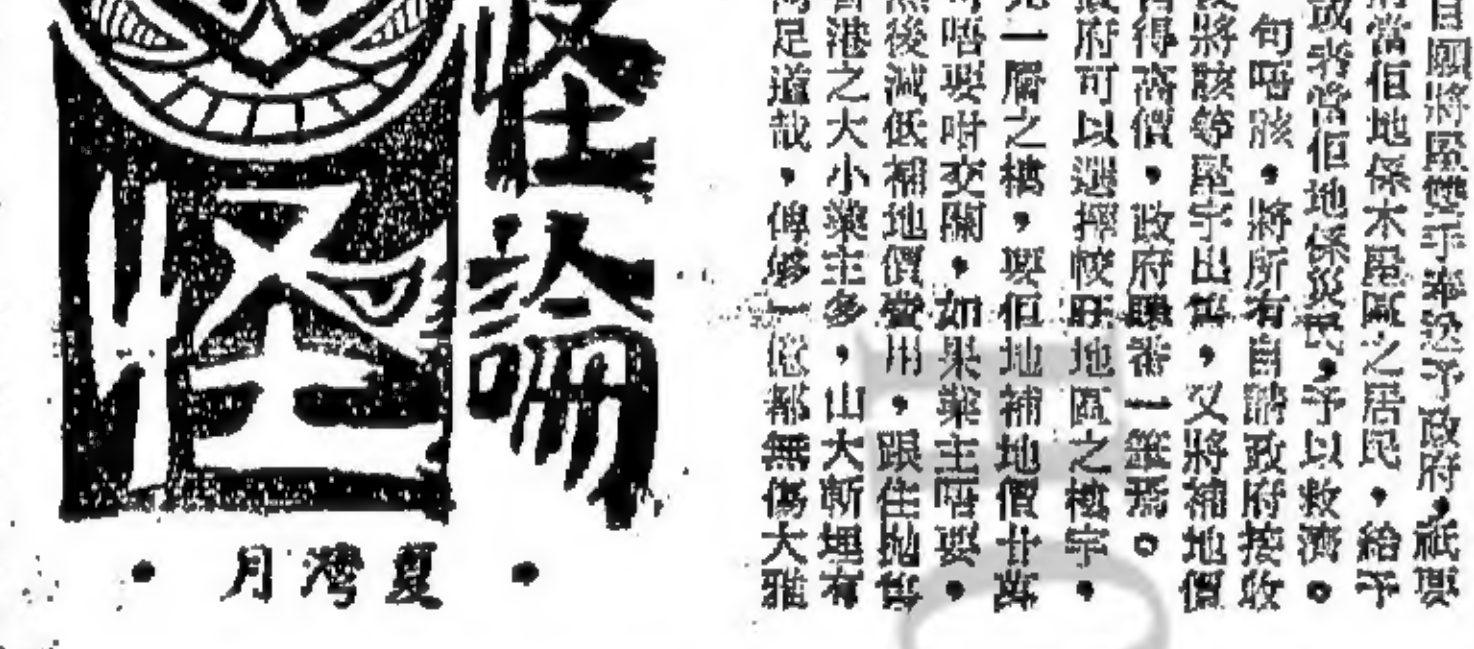 自願將屋雙手奉送予政府,祇要
當佢地係木屋區之居民,給予
或者當佢地係災民,予以救濟。
句唔該,將所有自請政府接收
將該等屋宇出售,又將補地價
得高價,政府賺番一筆添。
府可以選擇較旺地區之樓宇,
一層之樓,要佢地補地價廿萬
唔要咁交關,如果業主唔要,
然後減低補地價費用,跟住拋售
香港之大小業主多,山大斬埋有
足道哉,俾够一億都無傷大雅
怪論
怪
•夏灣月•